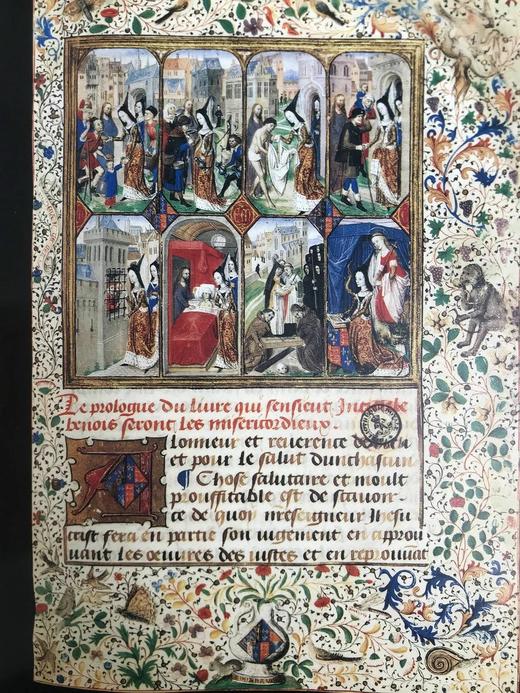 Le prologue du livre qui sensieut Intitule
benois seront les misericordieux.
A lonneur et reuerence de dieu
et pour le salut dunchascun
Chose salutaire et moult
prouffitable est de scauoir
ce de quoy nreseigneur Jhesu
crist fera en partie son iugement en approu
uant les oeuures des iustes et en reprouuat